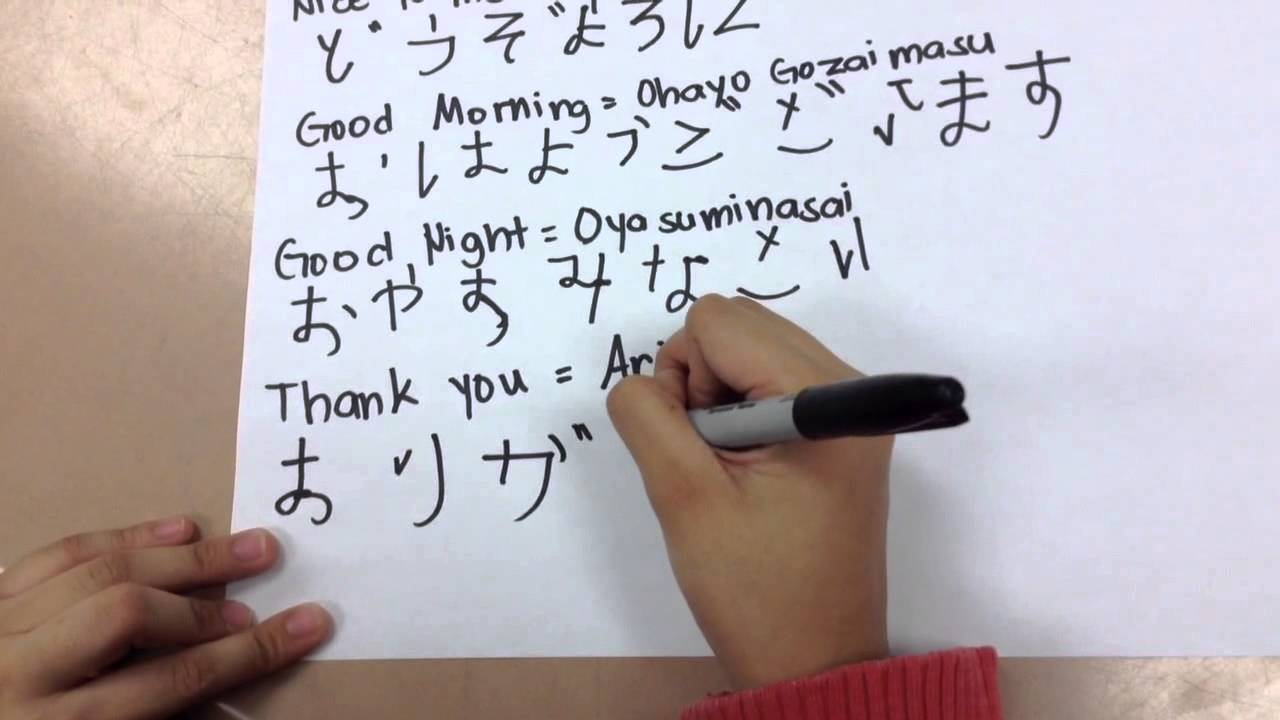 Nice to
どうぞよろしく
Good Morning = Ohayo Gozaimasu
おはようございます
Good Night = Oyasuminasai
おやすみなさい
Thank you = Ari
ありが